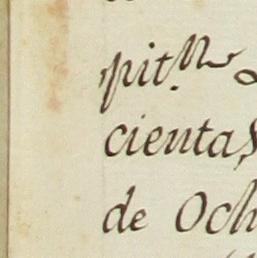 pit.n
cientas
de Och